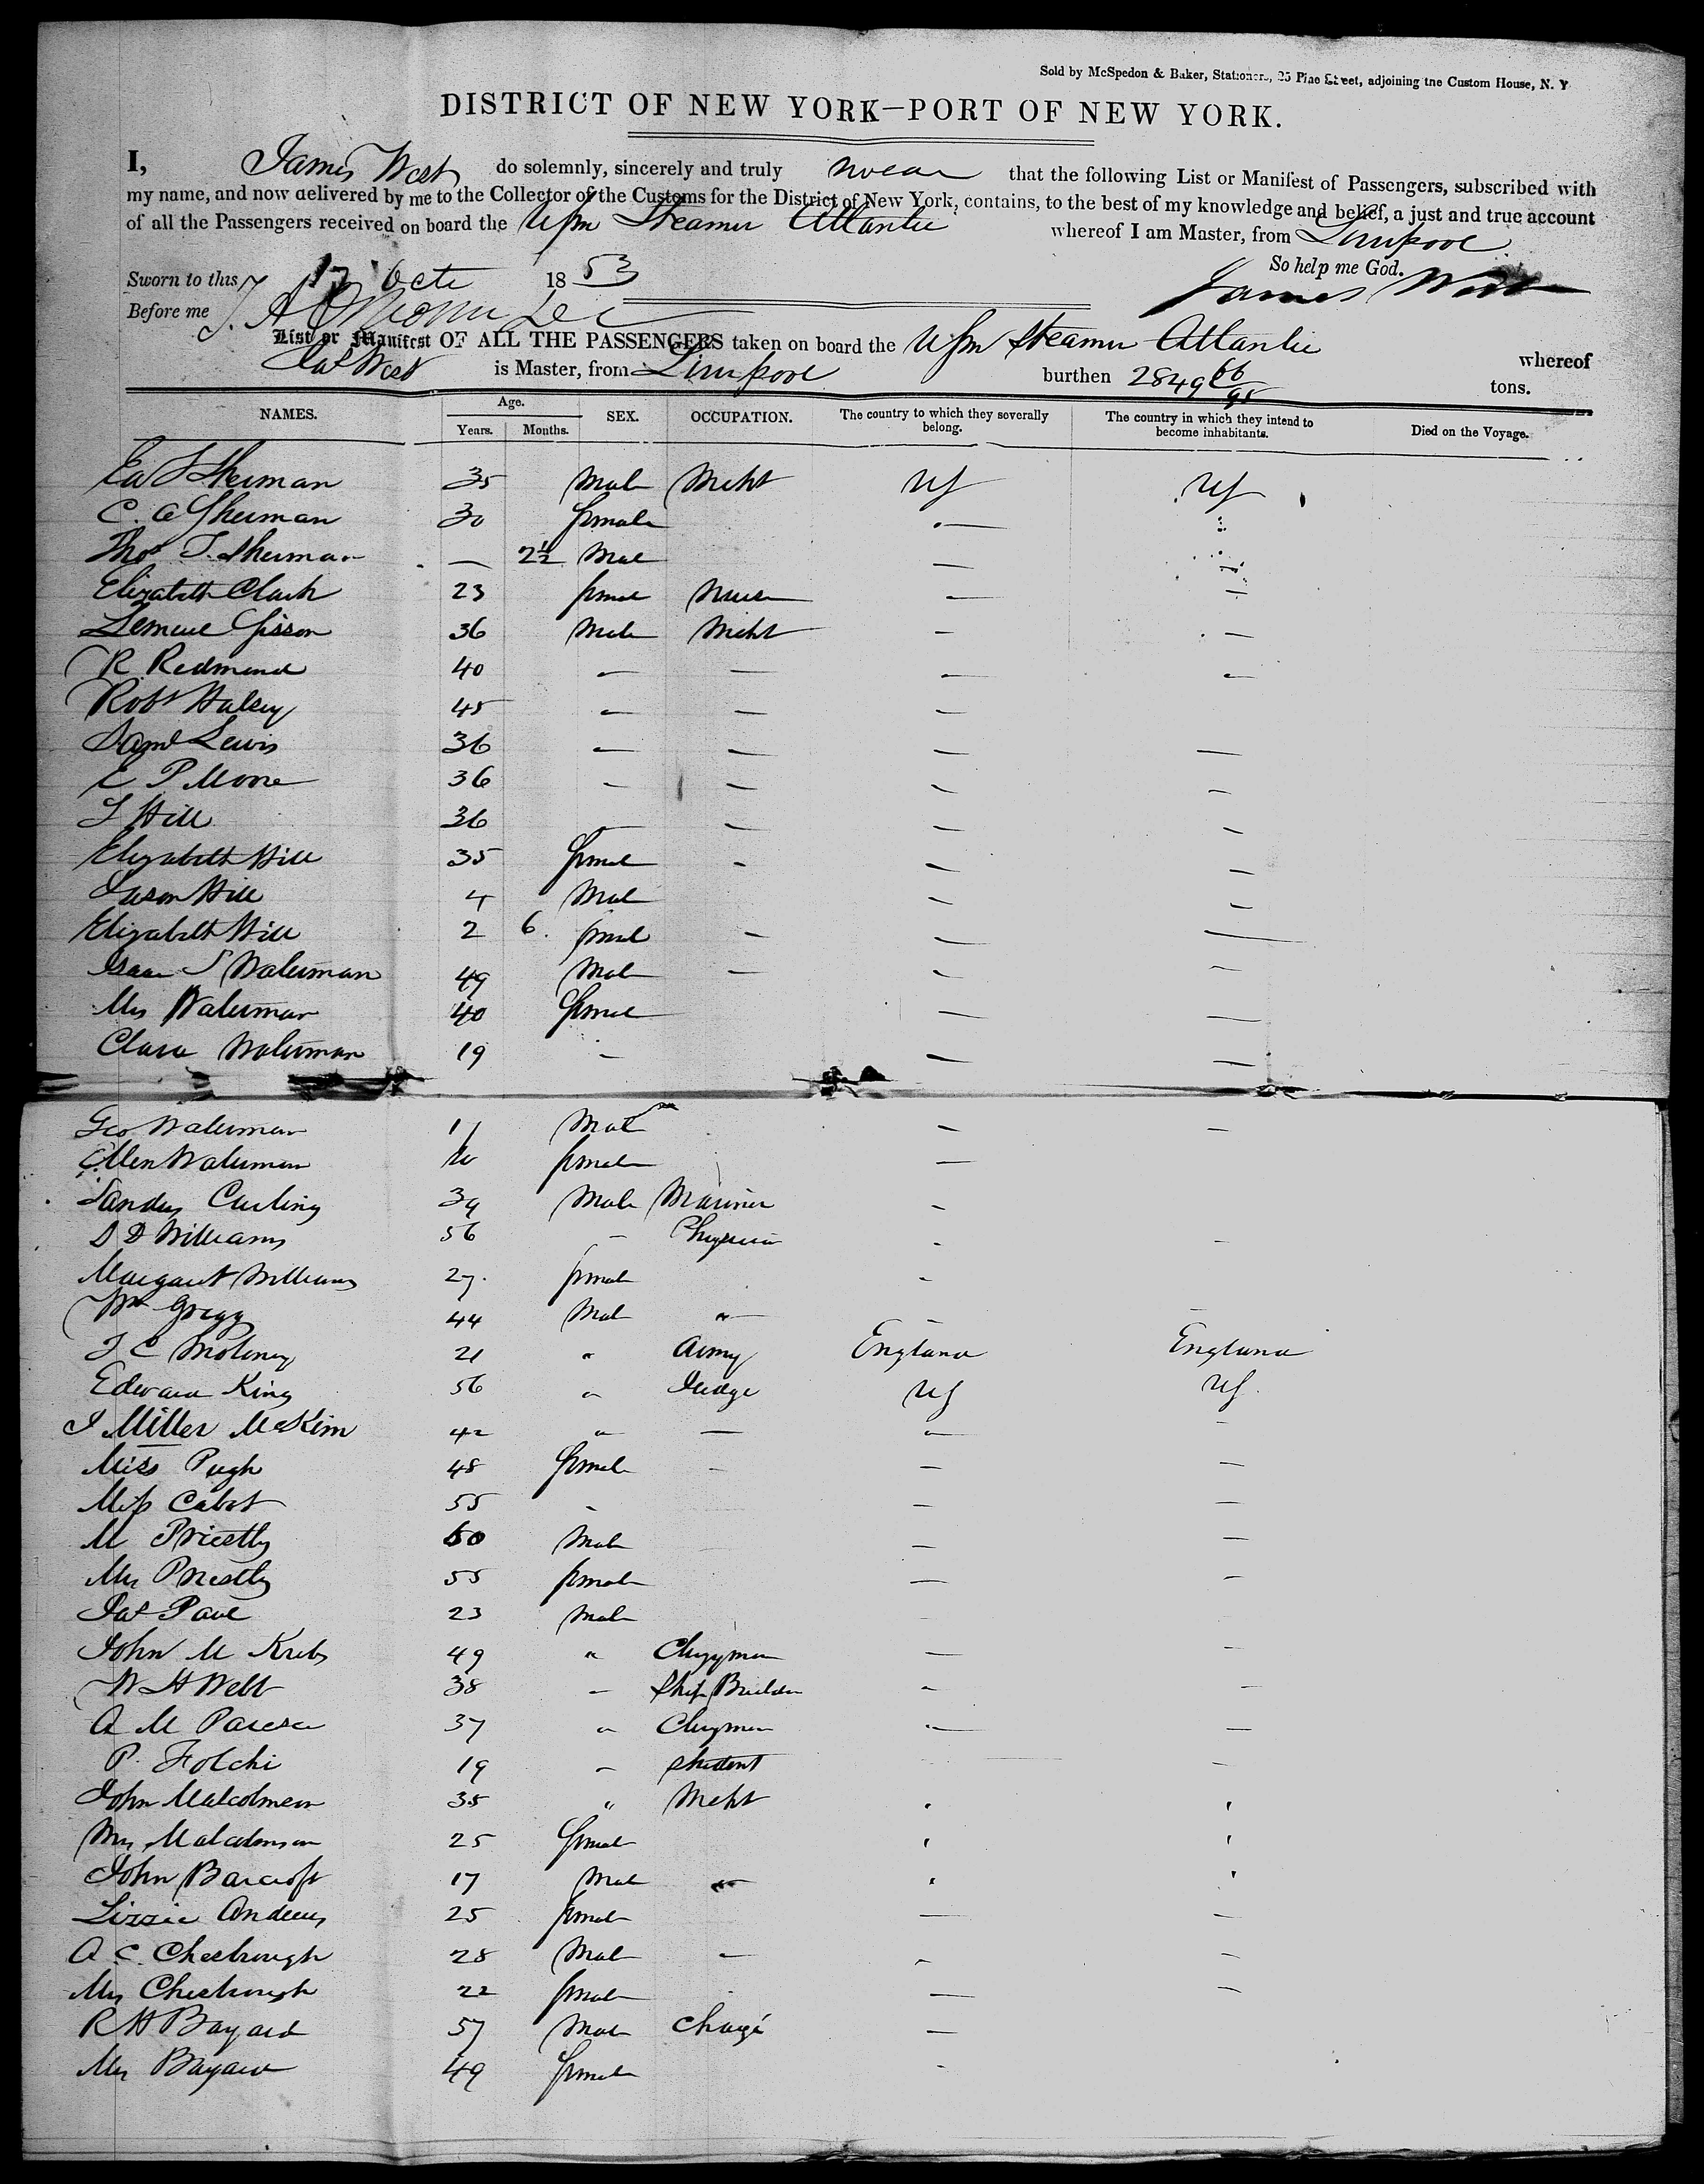 Sold by McSpedon & Baker, Stationers, 25 Pine Street, adjoining the Custom House, N. Y
DISTRICT OF NEW YORK—PORT OF NEW YORK.
I, James West do solemnly, sincerely and truly swear that the following List or Manifest of Passengers, subscribed with
my name, and now delivered by me to the Collector of the Customs for the District of New York, contains, to the best of my knowledge and belief, a just and true account
of all the Passengers received on board the USM Steamer Atlantic whereof I am Master, from Liverpool
So help me God.
Sworn to this 17 Octr 1853 James West
Before me
List or Manifest OF ALL THE PASSENGERS taken on board the USM Steamer Atlantic whereof
Jas West is Master, from Liverpool burthen 2849 66/95 tons.
NAMES. Age. Years. Months. SEX. OCCUPATION. The country to which they severally belong. The country in which they intend to become inhabitants. Died on the Voyage.
Ed S Sherman 35 Male Mcht US US
C. A Sherman 30 female —
Thos T. Sherman — 2½ Male — —
Elizabeth Clark 23 female Nurse — —
Lemuel Sisson 36 Male Mcht — —
R Redmond 40 — — — —
Robt Halsey 45 — — —
Saml Lewis 36 — — — —
E P Moore 36 — — — —
T Hill 36 — — — —
Elizabeth Hill 35 female - — —
Mason Hill 4 Male — —
Elizabeth Hill 2 6. female — — —
Isaac S Waterman 49 Male — — —
Mrs Waterman 40 female — —
Clara Waterman 19 — — —
Geo Waterman 11 Male — —
Ellen Waterman 10 female —
Sandy Curling 39 Male Mariner -
D D Williams 56 — Physician - —
Margaret Williams 27. female -
Wm Gregg 44 Male " —
T C Moloney 21 " Army England England
Edward King 56 " Judge US US.
J Miller McKim 42 " — — -
Miss Pugh 48 female — — —
Miss Cabot 55 - — —
M Priestly 60 Male — —
Mrs Priestly 55 female — —
Jas Paul 23 Male
John M Krebs 49 " Clergyman — —
W H Webb 38 — Ship Builder - —
A M Paresce 37 " Clergyman — —
P. Folchi 19 — Student —
John Malcolmson 35 " Mcht ' '
Mrs Malcolmson 25 female ' '
John Barcroft 17 Male — ' '
Lizzie Andrews 25 female — —
A. C. Chesbrough 28 Male — - —
Mrs Chesbrough 22 female — —
R H Bayard 57 Male Chargé —
Mrs Bayard 49 female -